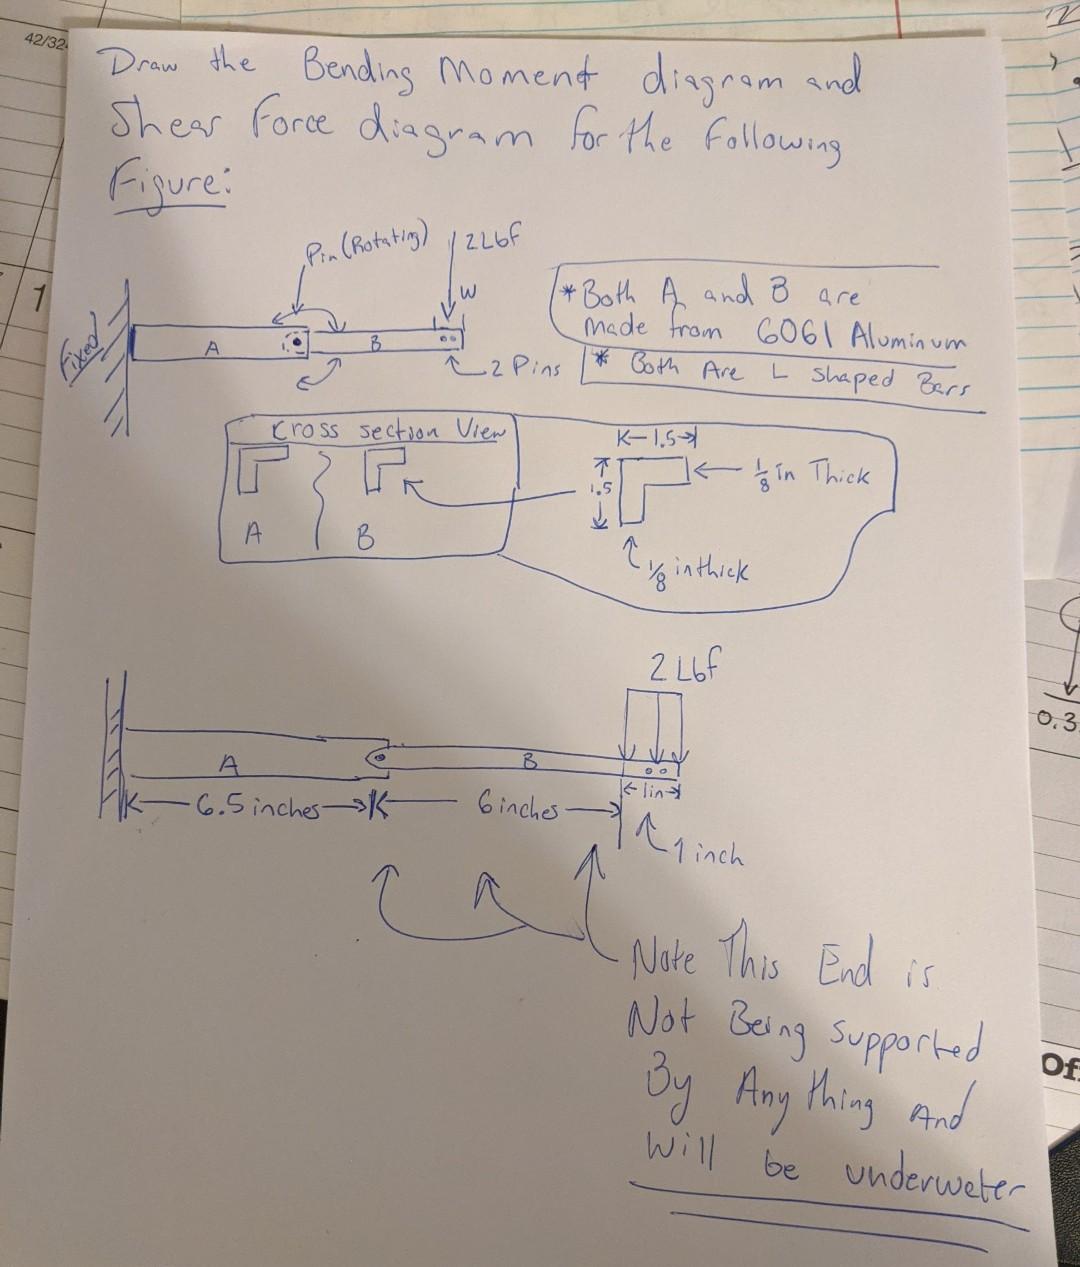 42/32
Draw the Bending Moment diagram and
Shear Force diagram for the Following
Figure:
Pin (Rotating)
2 Lbf
W
1
Fixed
A
B
2 Pins
* Both A and B are
made from 6061 Aluminum
* Both Are L shaped Bars
Cross section View
A
B
1.5
1.5
1/8 in Thick
1/8 in thick
2 Lbf
A
B
6.5 inches
6 inches
1in
1 inch
0.3
Note This End is
Not Being supported
By Any thing And
Of
Will be underweter